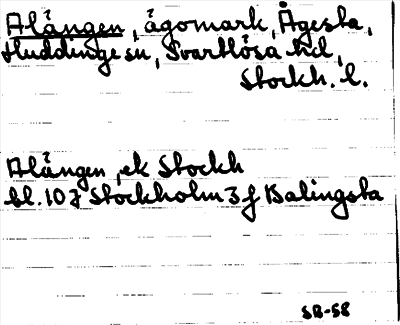 Alängen, ägomark, Ågesta,
Huddinge sn, Svartlösa hd,
Stockh. l.
Alängen, ek Stockh
bl. 10 J Stockholm 3 f Balingsta
SB-58